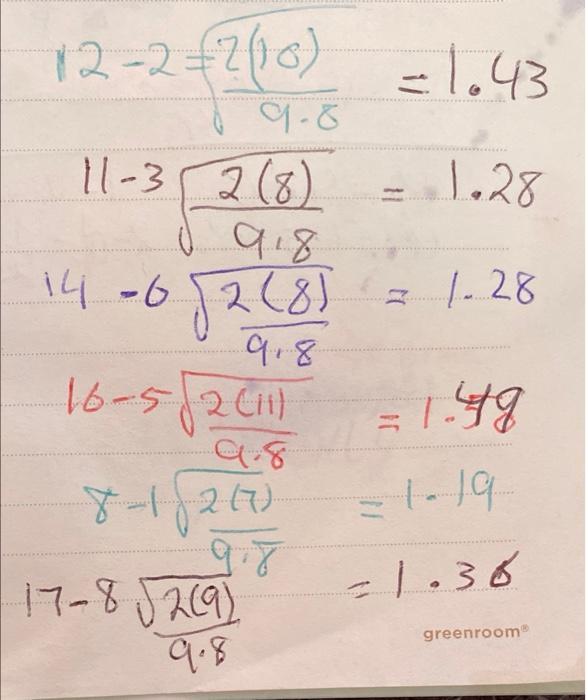 12-2=√2(10)/9.8 = 1.43
11-3√2(8)/9.8 = 1.28
14-6√2(8)/9.8 = 1.28
16-5√2(11)/9.8 = 1.49
8-1√2(7)/9.8 = 1.19
17-8√2(9)/9.8 = 1.36
greenroom®